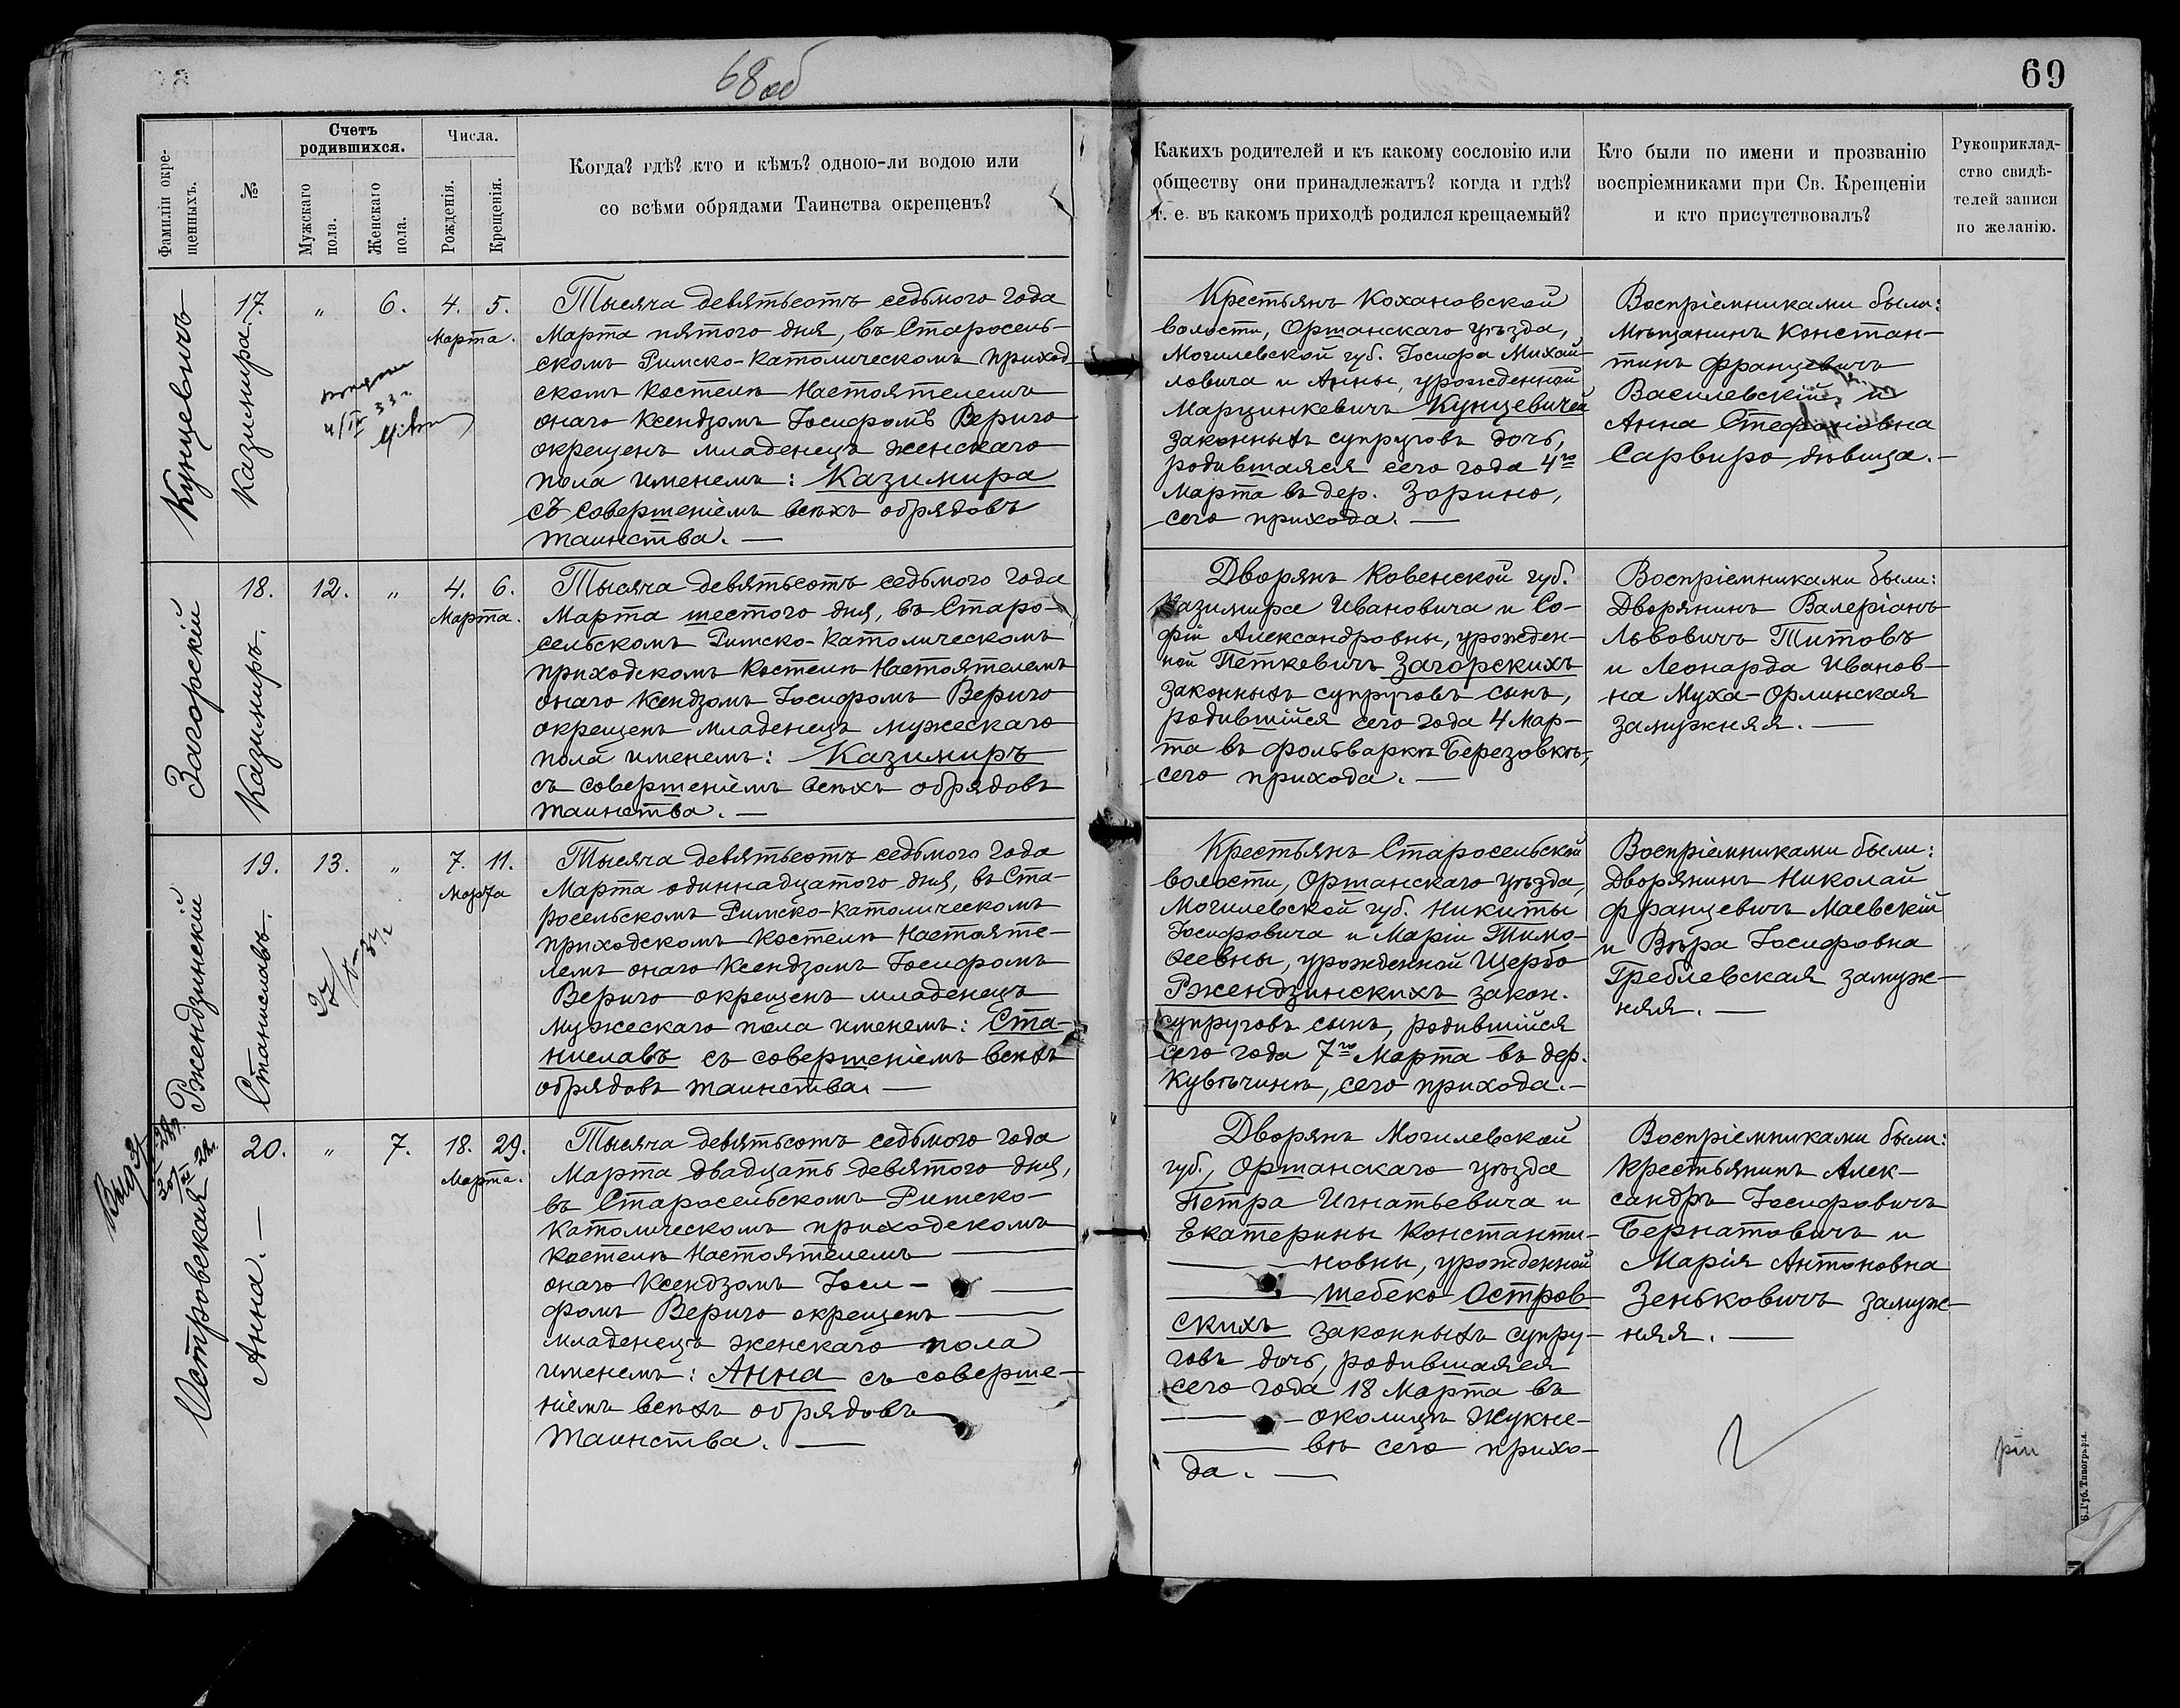 68 об
69
Фамиліи окре-
щенныхъ.
№
Счетъ
родившихся.
Мужскаго
пола.
Женскаго
пола.
Числа.
Рожденія.
Крещенія.
Когда? гдѣ? кто и кѣмъ? одною-ли водою или
со всѣми обрядами Таинства окрещенъ?
Какихъ родителей и къ какому сословію или
обществу они принадлежатъ? когда и гдѣ?
т. е. въ какомъ приходѣ родился крещаемый?
Кто были по имени и прозванію
воспріемниками при Св. Крещеніи
и кто присутствовалъ?
Рукоприклад-
ство свидѣ-
телей записи
по желанію.
Кунцевичъ
17.
Казимира.
"
6.
4. 5.
Марта.
Тысяча девятьсотъ седьмого года
Марта пятого дня, въ Старосель-
скомъ Римско-Католическомъ приход-
скомъ костелѣ Настоятелемъ
онаго Ксендзомъ Іосифомъ Вериго
окрещенъ младенецъ женскаго
пола именемъ: Казимира
съ совершеніемъ всѣхъ обрядовъ
таинства. —
Крестьянъ Кохановской
волости, Оршанскаго уѣзда,
Могилевской губ. Іосифа Михай-
ловича и Анны, урожденной
Марцинкевичъ Кунцевичей
законныхъ супруговъ дочь,
родившаяся сего года 4го
Марта въ дер. Зорино,
сего прихода. —
Воспріемниками были:
Мѣщанинъ Констан-
тинъ Францевичъ
Василевскій и
Анна Стефановна
Сарвиро дѣвица. —
Загорскій
18.
Казимиръ.
12.
"
4. 6.
Марта.
Тысяча девятьсотъ седьмого года
Марта шестого дня, въ Старо-
сельскомъ Римско-Католическомъ
приходскомъ костелѣ Настоятелемъ
онаго Ксендзомъ Іосифомъ Вериго
окрещенъ младенецъ мужескаго
пола именемъ: Казимиръ
съ совершеніемъ всѣхъ обрядовъ
таинства. —
Дворянъ Ковенской губ.
Казимира Ивановича и Со-
фіи Александровны, урожден-
ной Петкевичъ Загорскихъ
законныхъ супруговъ сынъ,
родившійся сего года 4 Мар-
та въ фольваркѣ Березовкѣ,
сего прихода. —
Воспріемниками были:
Дворянинъ Валеріанъ
Львовичъ Титовъ
и Леонарда Иванов-
на Муха-Орлинская
замужняя. —
Ржендзинскій
19.
Станиславъ.
13.
"
7. 11.
Марта
Тысяча девятьсотъ седьмого года
Марта одиннадцатого дня, въ Ста-
росельскомъ Римско-Католическомъ
приходскомъ костелѣ Настояте-
лемъ онаго Ксендзомъ Іосифомъ
Вериго окрещенъ младенецъ
мужескаго пола именемъ: Ста-
ниславъ съ совершеніемъ всѣхъ
обрядовъ таинства. —
Крестьянъ Старосельской
волости, Оршанскаго уѣзда,
Могилевской губ. Никиты
Іосифовича и Маріи Тимо-
ѳеевны, урожденной Щербо
Ржендзинскихъ закон.
супруговъ сынъ, родившійся
сего года 7го Марта въ дер.
Кувѣчинѣ, сего прихода. —
Воспріемниками были:
Дворянинъ Николай
Францевичъ Маевскій
и Вѣра Іосифовна
Греблевская замуж-
няя. —
Островская
20.
Анна. —
"
7.
18. 29.
Марта.
Тысяча девятьсотъ седьмого года
Марта двадцать девятого дня,
въ Старосельскомъ Римско-
Католическомъ приходскомъ
костелѣ Настоятелемъ —
онаго Ксендзомъ Іоси- —
фомъ Вериго окрещенъ —
младенецъ женскаго пола
именемъ: Анна съ соверше-
ніемъ всѣхъ обрядовъ
таинства. —
Дворянъ Могилевской
губ., Оршанскаго уѣзда
Петра Игнатьевича и
Екатерины Константи-
— новны, урожденной
— Шебеко Остров-
скихъ законныхъ супру-
говъ дочь, родившаяся
сего года 18 Марта въ
— околицѣ Жукне-
— вѣ сего прихо-
да. —
Воспріемниками были:
Крестьянинъ Алек-
сандръ Іосифовичъ
Бернатовичъ и
Марія Антоновна
Зеньковичъ замуж-
няя. —